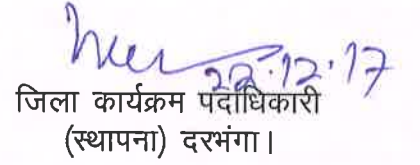 22.12.17
जिला कार्यक्रम पदाधिकारी
(स्थापना) दरभंगा।